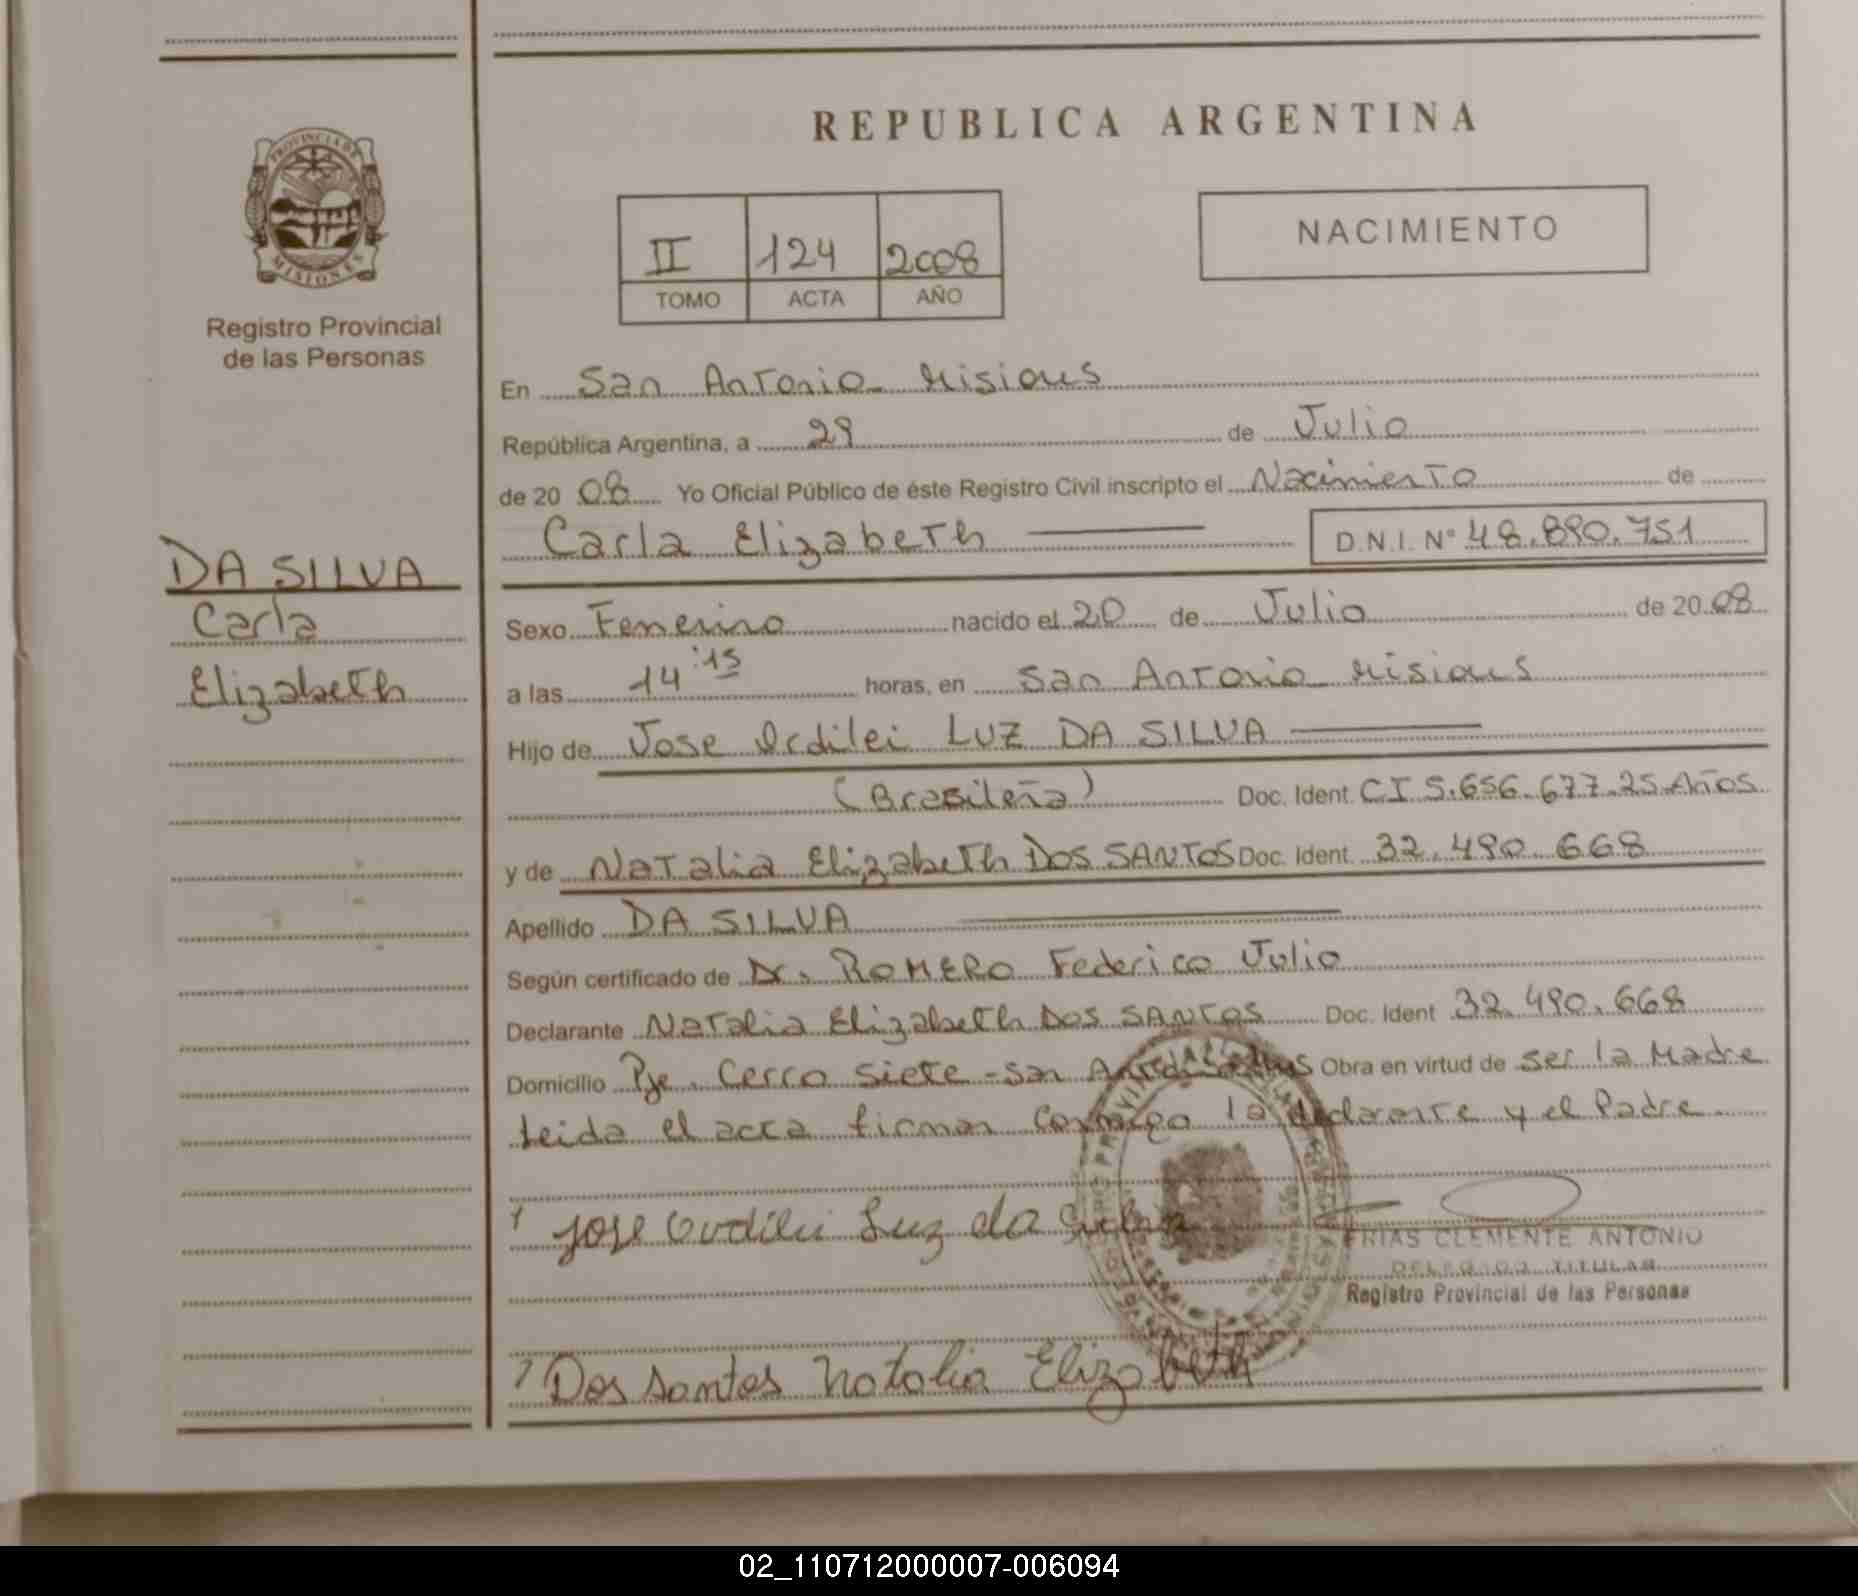 PROVINCIA DE
MISIONES
Registro Provincial
de las Personas
DA SILVA
Carla
Elizabeth
REPUBLICA ARGENTINA
II 124 2008
TOMO ACTA AÑO
NACIMIENTO
En San Antonio Misiones
República Argentina, a 29 de Julio
de 20 08 Yo Oficial Público de éste Registro Civil inscripto el Nacimiento de
Carla Elizabeth D.N.I. Nº 48.890.751
Sexo Femenino nacido el 20 de Julio de 20 08
a las 14:15 horas, en San Antonio Misiones
Hijo de Jose Ordilei LUZ DA SILVA
(Brasileña) Doc. Ident. CI 5.656.677.25 Años
y de Natalia Elizabeth DOS SANTOS Doc. Ident. 32.490.668
Apellido DA SILVA
Según certificado de Dr. ROMERO Federico Julio
Declarante Natalia Elizabeth DOS SANTOS Doc. Ident 32.490.668
Domicilio Pje. Cerro Siete - San Obra en virtud de ser la Madre
Leida el acta firman conmigo la declarante y el Padre
Jose Ordilei Luz da Silva
FRIAS CLEMENTE ANTONIO
DELEGADO TITULAR
Registro Provincial de las Personas
Dos Santos Natalia Elizabeth
02_110712000007-006094